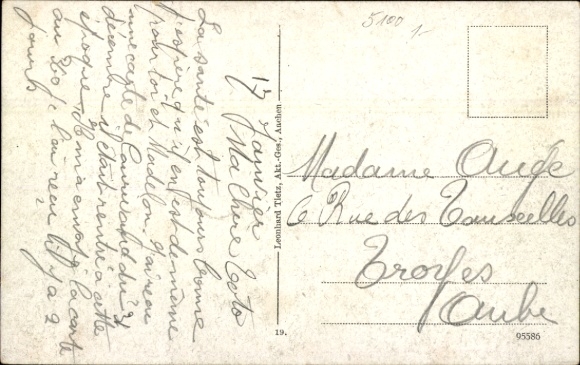 17 Janvier
Ma Chère Toto
La santé est toujours bonne
j'espère qu'il en est de même
pour toi et Madelon. J'ai reçu
une carte de du 31
décembre il était rentré à cette
époque. Il m'a envoyé la carte
au 20e je l'ai reçu il y a 2
jours
5100
1-
Leonhard Tietz, Akt.-Ges., Aachen
Madame Augé
6 Rue des Tauxelles
Troyes
Aube
19.
95586